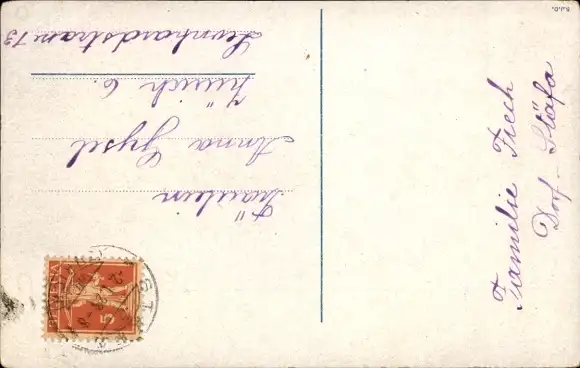 Fräulein
Anna Gysel
Zürich 6.
Leonhardstrasse 13
Familie Frech
Dorf - Stäfa
HELVETIA
5